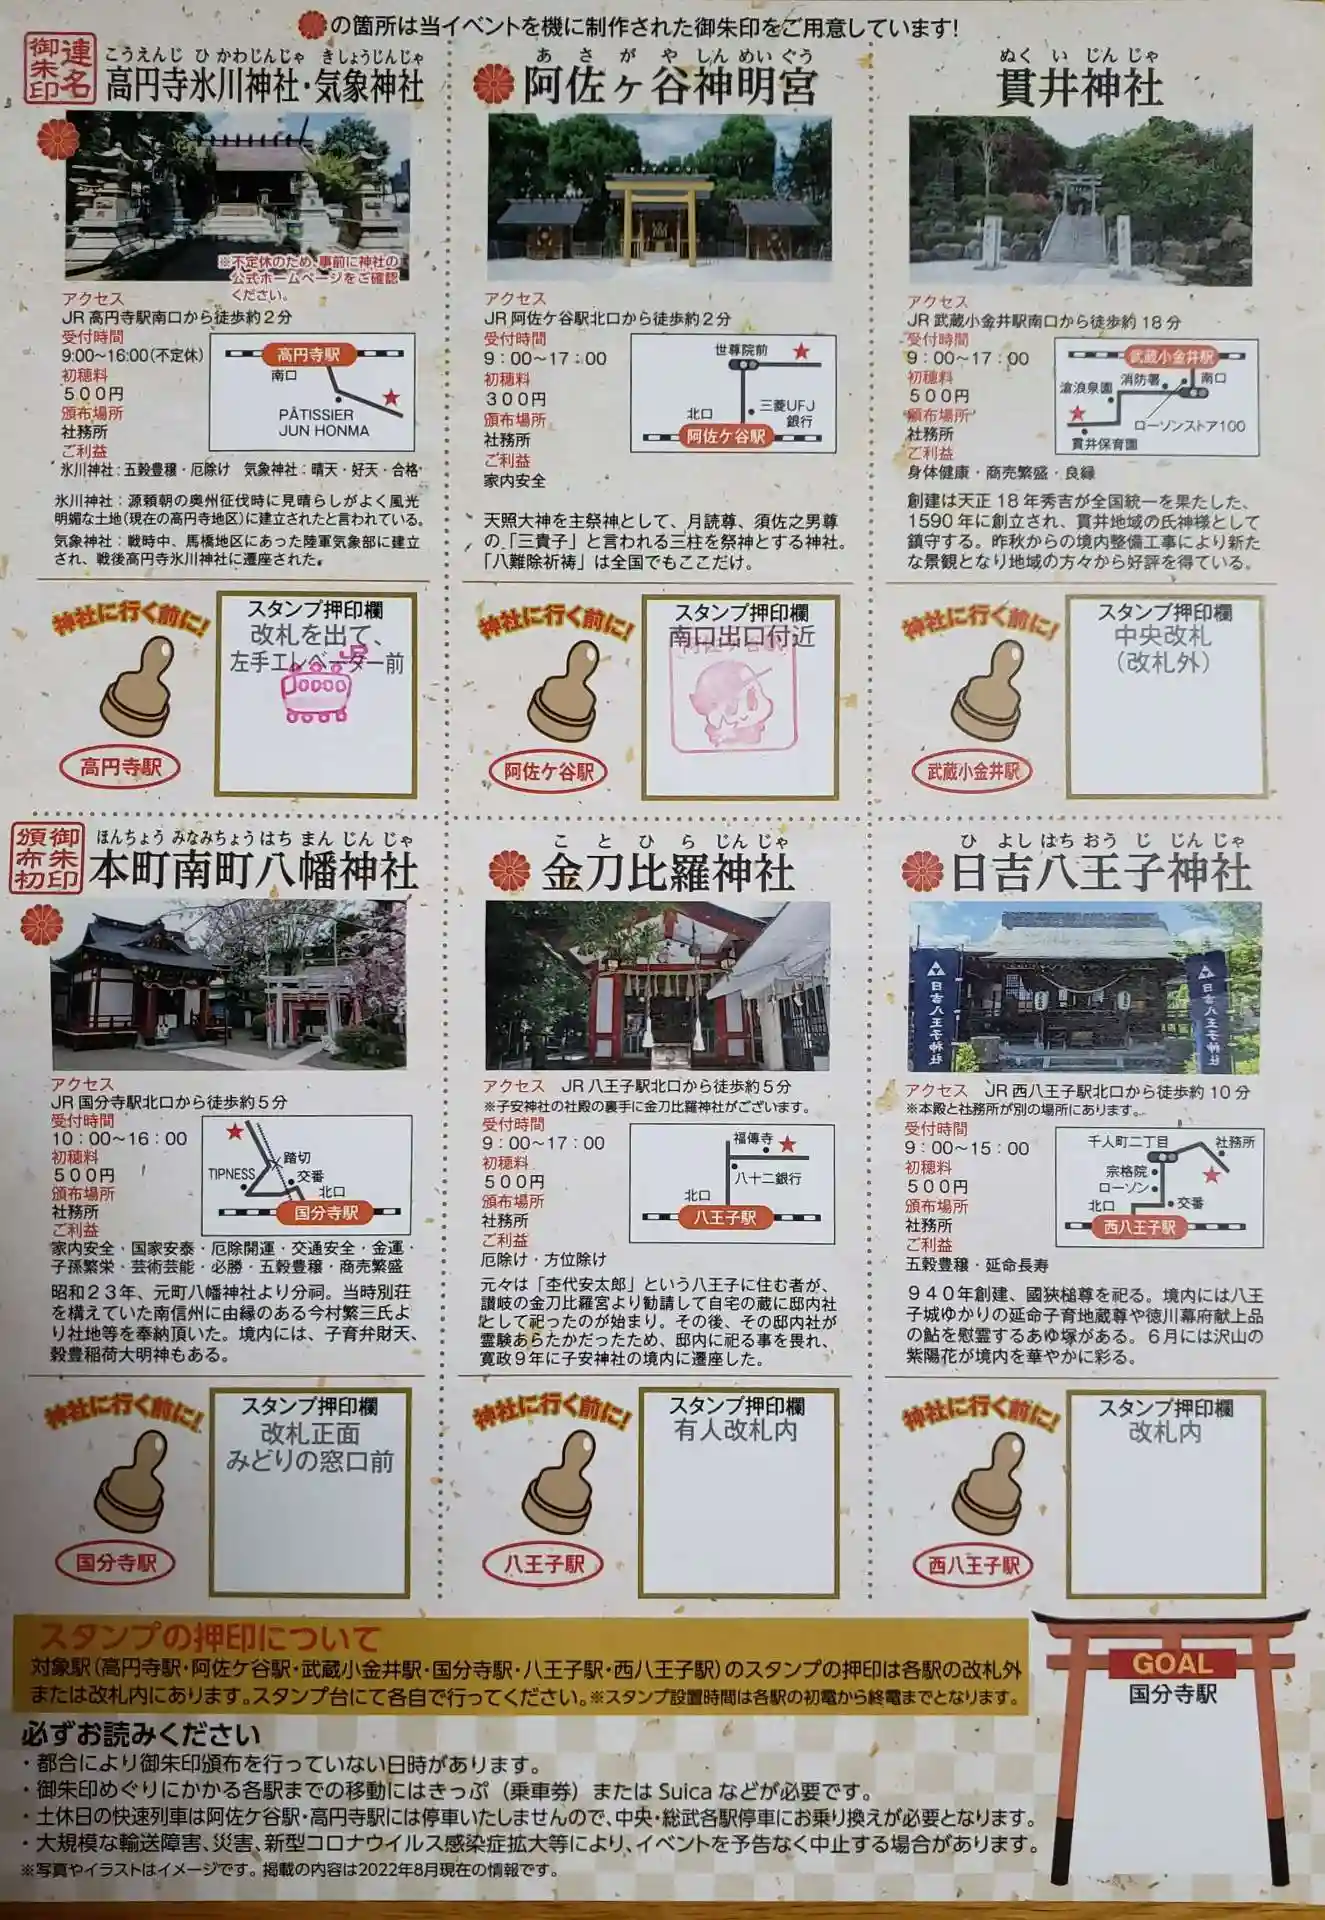 の箇所は当イベントを機に制作された御朱印をご用意しています!
連名
御朱印
こうえんじ ひかわじんじゃ きしょうじんじゃ
高円寺氷川神社・気象神社
※不定休のため、事前に神社の
公式ホームページをご確認
ください。
アクセス
JR高円寺駅南口から徒歩約2分
受付時間
9:00~16:00(不定休)
初穂料
500円
頒布場所
社務所
ご利益
氷川神社:五穀豊穣・厄除け 気象神社:晴天・好天・合格
高円寺駅
南口
PÂTISSIER
JUN HONMA
氷川神社:源頼朝の奥州征伐時に見晴らしがよく風光
明媚な土地(現在の高円寺地区)に建立されたと言われている。
気象神社:戦時中、馬橋地区にあった陸軍気象部に建立
され、戦後高円寺氷川神社に遷座された。
神社に行く前に!
高円寺駅
スタンプ押印欄
改札を出て、
左手エレベーター前
JR
あさがやしんめいぐう
阿佐ヶ谷神明宮
アクセス
JR阿佐ケ谷駅北口から徒歩約2分
受付時間
9:00~17:00
初穂料
300円
頒布場所
社務所
ご利益
家内安全
世尊院前
三菱UFJ
銀行
北口
阿佐ケ谷駅
天照大神を主祭神として、月読尊、須佐之男尊
の、「三貴子」と言われる三柱を祭神とする神社。
「八難除祈祷」は全国でもここだけ。
神社に行く前に!
阿佐ケ谷駅
スタンプ押印欄
南口出口付近
阿佐ケ谷駅
ぬくいじんじゃ
貫井神社
アクセス
JR武蔵小金井駅南口から徒歩約18分
受付時間
9:00~17:00
初穂料
500円
頒布場所
社務所
ご利益
身体健康・商売繁盛・良縁
武蔵小金井駅
滄浪泉園
消防署
南口
ローソンストア100
貫井保育園
創建は天正18年秀吉が全国統一を果たした、
1590年に創立され、貫井地域の氏神様として
鎮守する。昨秋からの境内整備工事により新た
な景観となり地域の方々から好評を得ている。
神社に行く前に!
武蔵小金井駅
スタンプ押印欄
中央改札
(改札外)
御朱印
頒布初
ほんちょうみなみちょうはちまんじんじゃ
本町南町八幡神社
アクセス
JR国分寺駅北口から徒歩約5分
受付時間
10:00~16:00
初穂料
500円
頒布場所
社務所
ご利益
家内安全・国家安泰・厄除開運・交通安全・金運・
子孫繁栄・芸術芸能・必勝・五穀豊穣・商売繁盛
踏切
TIPNESS
交番
北口
国分寺駅
昭和23年、元町八幡神社より分祠。当時別荘
を構えていた南信州に由縁のある今村繁三氏よ
り社地等を奉納頂いた。境内には、子育弁財天、
穀豊稲荷大明神もある。
神社に行く前に!
国分寺駅
スタンプ押印欄
改札正面
みどりの窓口前
ことひらじんじゃ
金刀比羅神社
アクセス JR八王子駅北口から徒歩約5分
※子安神社の社殿の裏手に金刀比羅神社がございます。
受付時間
9:00~17:00
初穂料
500円
頒布場所
社務所
ご利益
厄除け・方位除け
福傳寺
八十二銀行
北口
八王子駅
元々は「杢代安太郎」という八王子に住む者が、
讃岐の金刀比羅宮より勧請して自宅の蔵に邸内社
として祀ったのが始まり。その後、その邸内社が
霊験あらたかだったため、邸内に祀る事を畏れ、
寛政9年に子安神社の境内に遷座した。
神社に行く前に!
八王子駅
スタンプ押印欄
有人改札内
ひよしはちおうじじんじゃ
日吉八王子神社
日吉八王子神社
日吉八王子神社
アクセス JR西八王子駅北口から徒歩約10分
※本殿と社務所が別の場所にあります。
受付時間
9:00~15:00
初穂料
500円
頒布場所
社務所
ご利益
五穀豊穣・延命長寿
千人町二丁目
社務所
宗格院
ローソン
北口
交番
西八王子駅
940年創建、國狭槌尊を祀る。境内には八王
子城ゆかりの延命子育地蔵尊や徳川幕府献上品
の鮎を慰霊するあゆ塚がある。6月には沢山の
紫陽花が境内を華やかに彩る。
神社に行く前に!
西八王子駅
スタンプ押印欄
改札内
スタンプの押印について
対象駅(高円寺駅・阿佐ケ谷駅・武蔵小金井駅・国分寺駅・八王子駅・西八王子駅)のスタンプの押印は各駅の改札外
または改札内にあります。スタンプ台にて各自で行ってください。※スタンプ設置時間は各駅の初電から終電までとなります。
必ずお読みください
・都合により御朱印頒布を行っていない日時があります。
・御朱印めぐりにかかる各駅までの移動にはきっぷ(乗車券)またはSuicaなどが必要です。
・土休日の快速列車は阿佐ケ谷駅・高円寺駅には停車いたしませんので、中央・総武各駅停車にお乗り換えが必要となります。
・大規模な輸送障害、災害、新型コロナウイルス感染症拡大等により、イベントを予告なく中止する場合があります。
※写真やイラストはイメージです。掲載の内容は2022年8月現在の情報です。
GOAL
国分寺駅